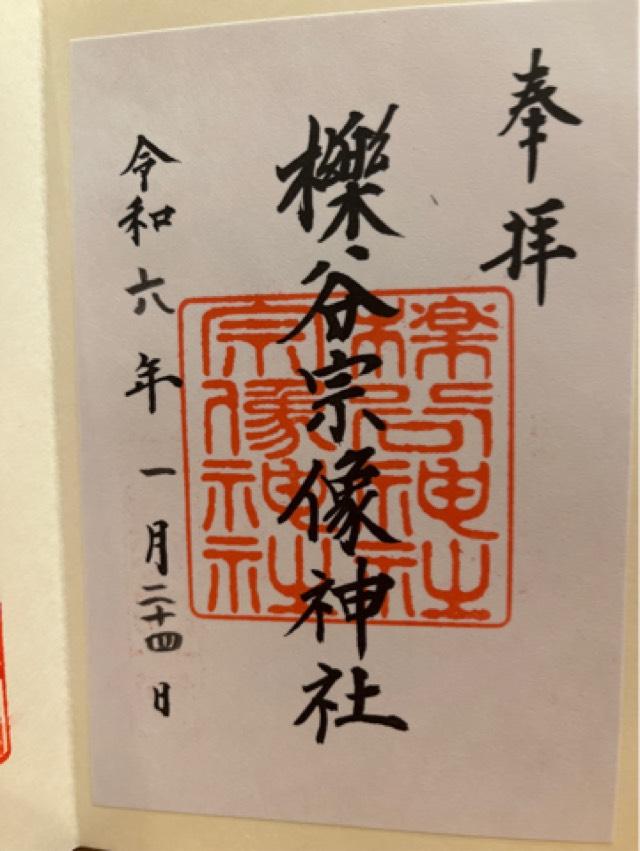 奉拝
櫟谷宗像神社
令和六年一月二十四日
櫟谷神社
宗像神社